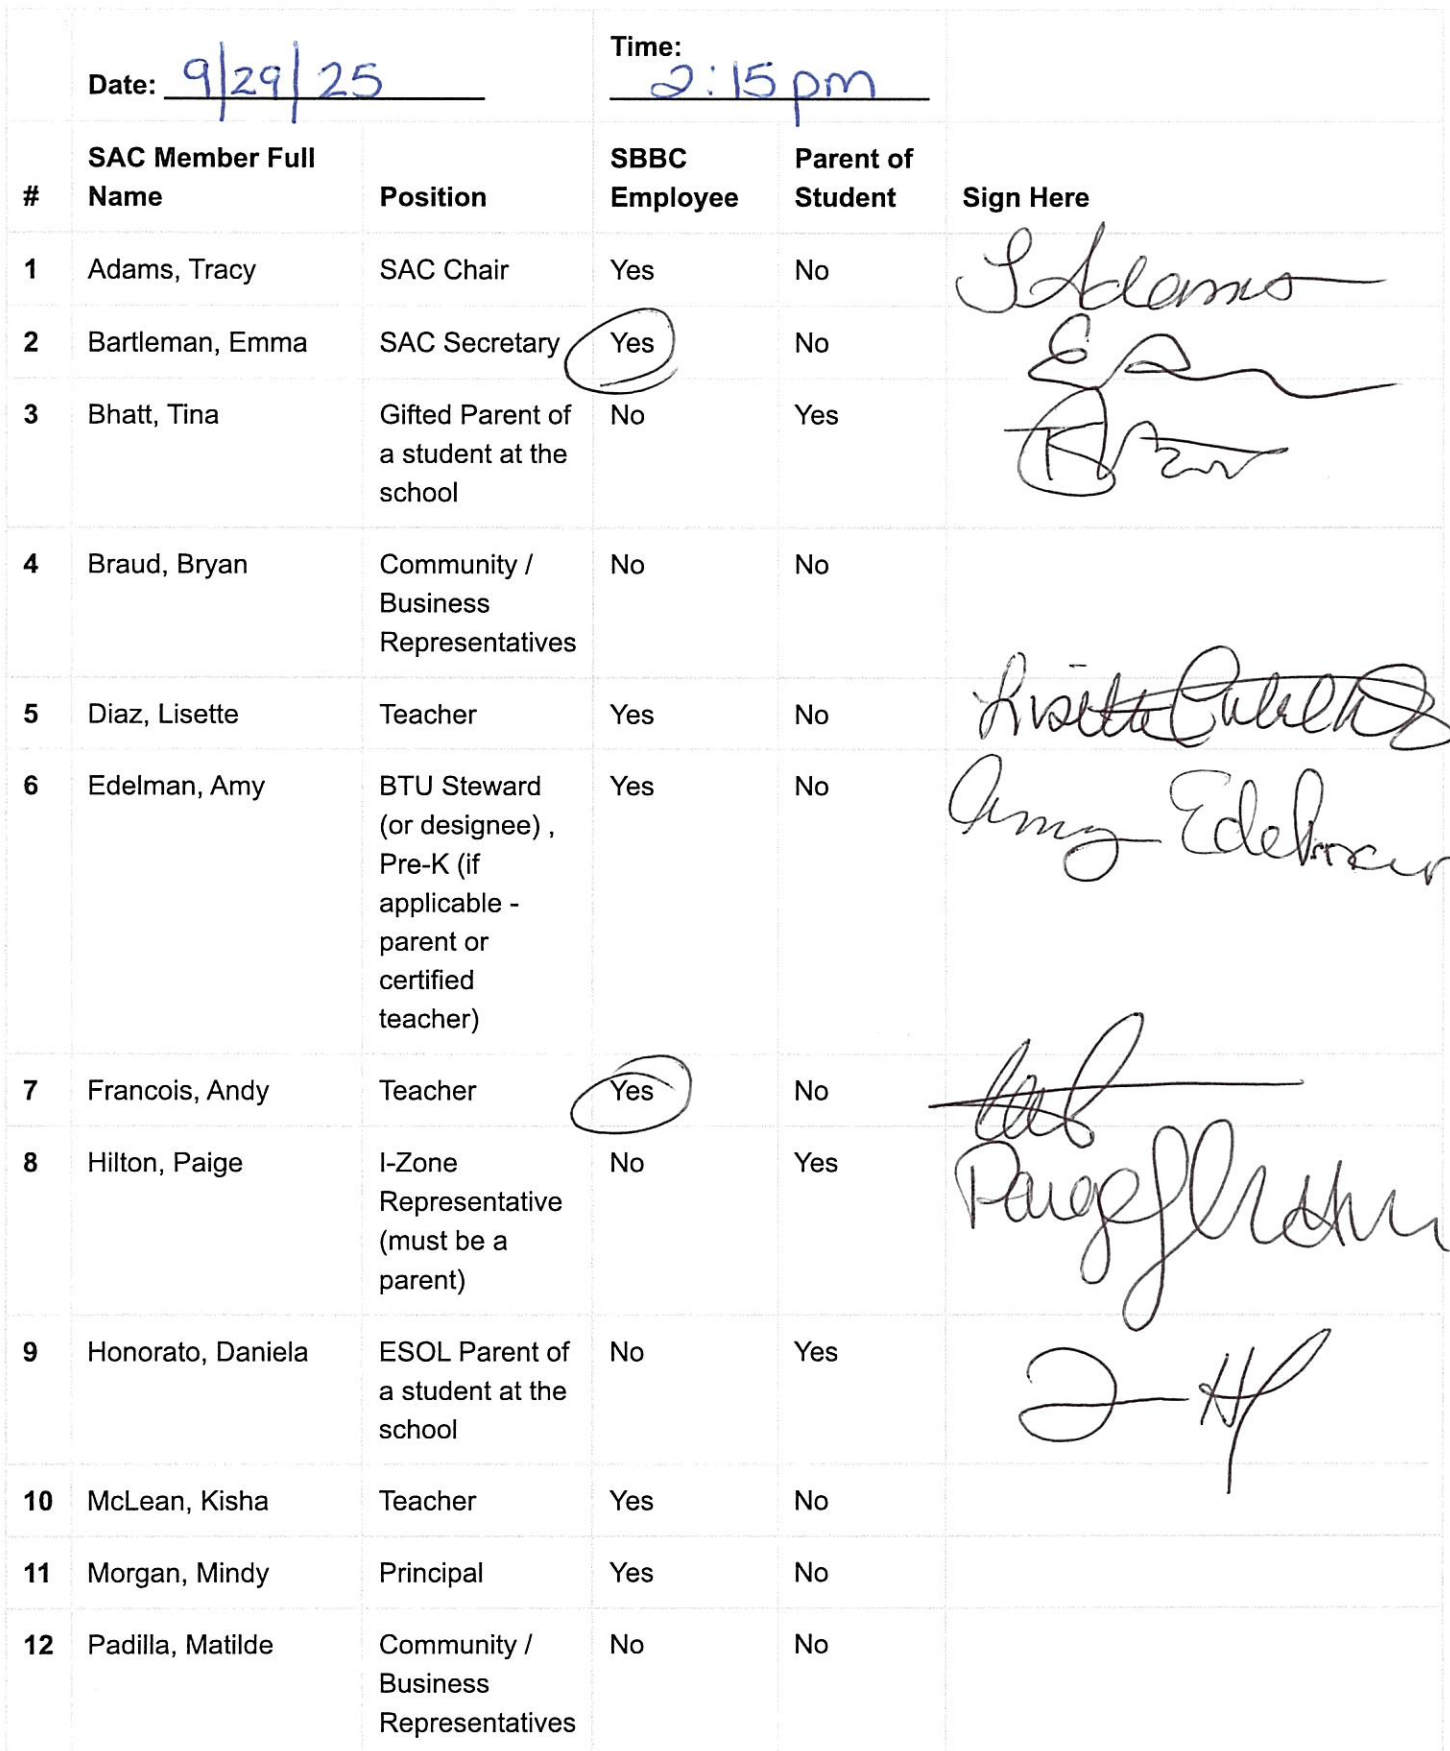 Date: 9/29/25 Time: 2:15 pm
# SAC Member Full Name Position SBBC Employee Parent of Student Sign Here
1 Adams, Tracy SAC Chair Yes No T Adams
2 Bartleman, Emma SAC Secretary Yes No
3 Bhatt, Tina Gifted Parent of a student at the school No Yes
4 Braud, Bryan Community / Business Representatives No No
5 Diaz, Lisette Teacher Yes No Lisette
6 Edelman, Amy BTU Steward (or designee) , Pre-K (if applicable - parent or certified teacher) Yes No Amy Edelman
7 Francois, Andy Teacher Yes No
8 Hilton, Paige I-Zone Representative (must be a parent) No Yes Paige
9 Honorato, Daniela ESOL Parent of a student at the school No Yes
10 McLean, Kisha Teacher Yes No
11 Morgan, Mindy Principal Yes No
12 Padilla, Matilde Community / Business Representatives No No